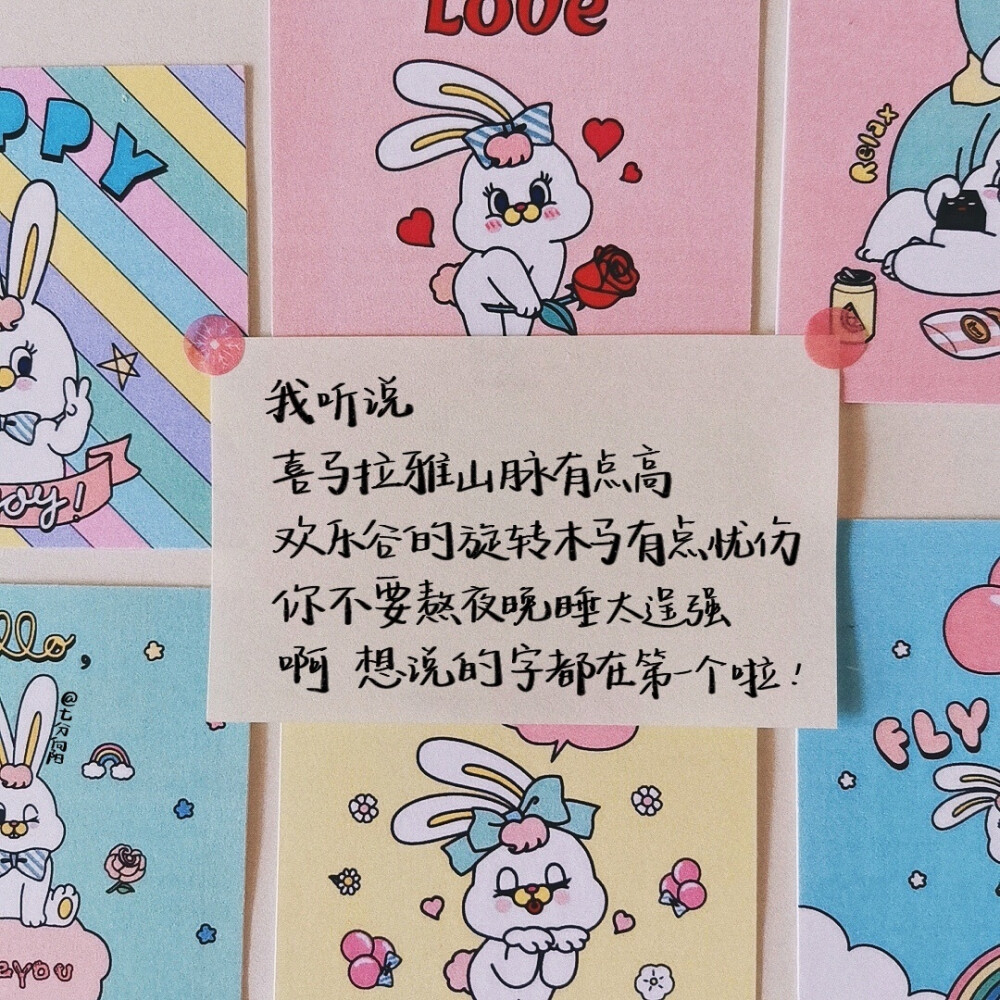 Love
PPY
Relax
我听说
喜马拉雅山脉有点高
欢乐谷的旋转木马有点忧伤
你不要熬夜晚睡太逞强
啊 想说的字都在第一个啦！
oy!
llo,
@七分向阳
FLY
YOU